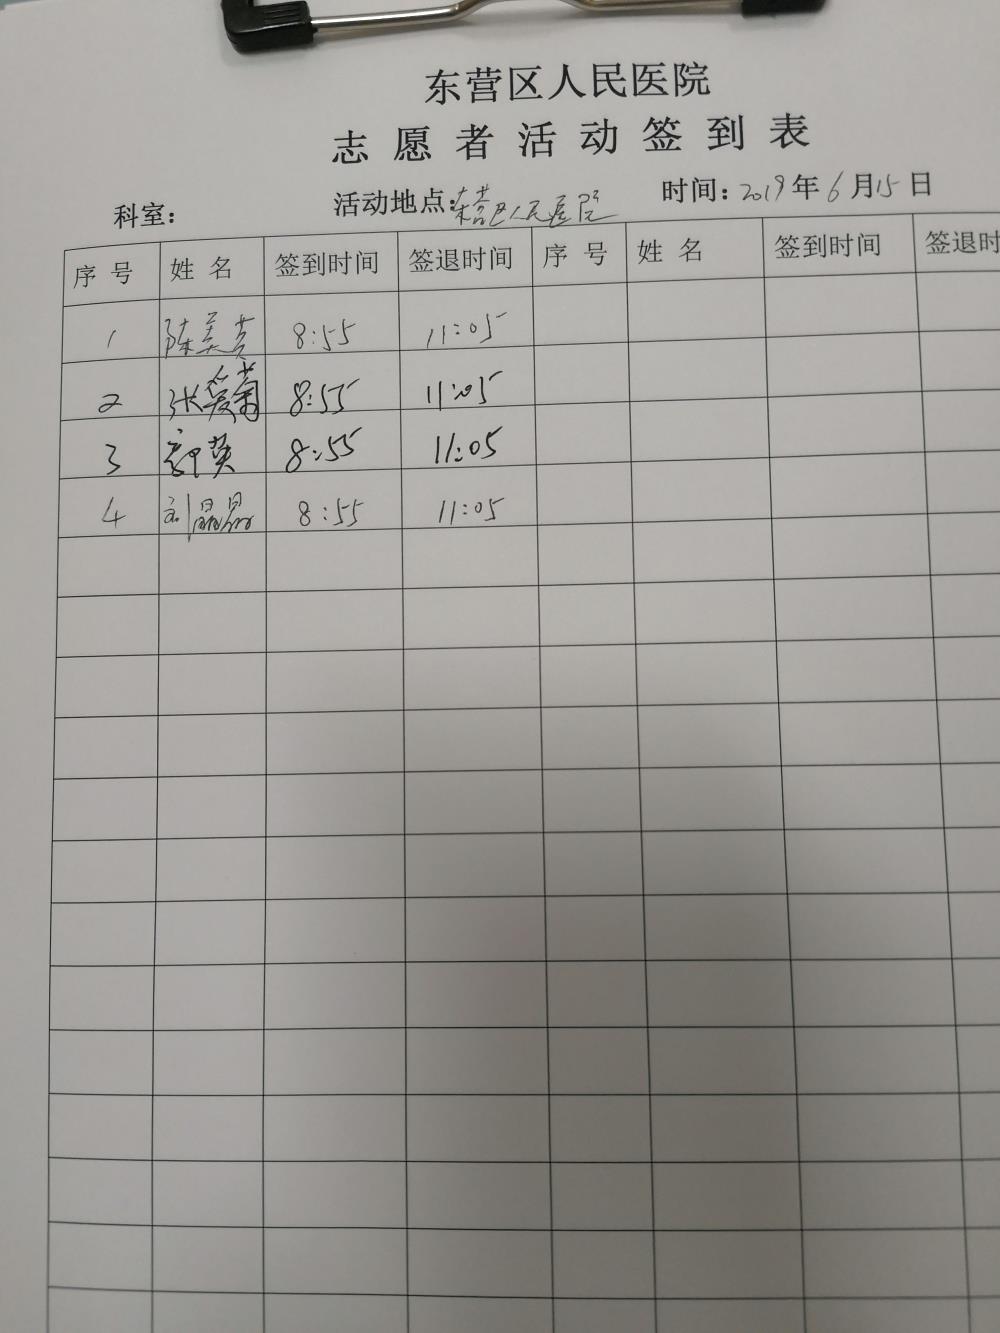 东营区人民医院
志愿者活动签到表
科室： 活动地点：东营区人民医院 时间：2019年6月15日
序号 姓名 签到时间 签退时间 序号 姓名 签到时间 签退时
1 陈美英 8:55 11:05
2 张爱菊 8:55 11:05
3 8:55 11:05
4 刘晶晶 8:55 11:05